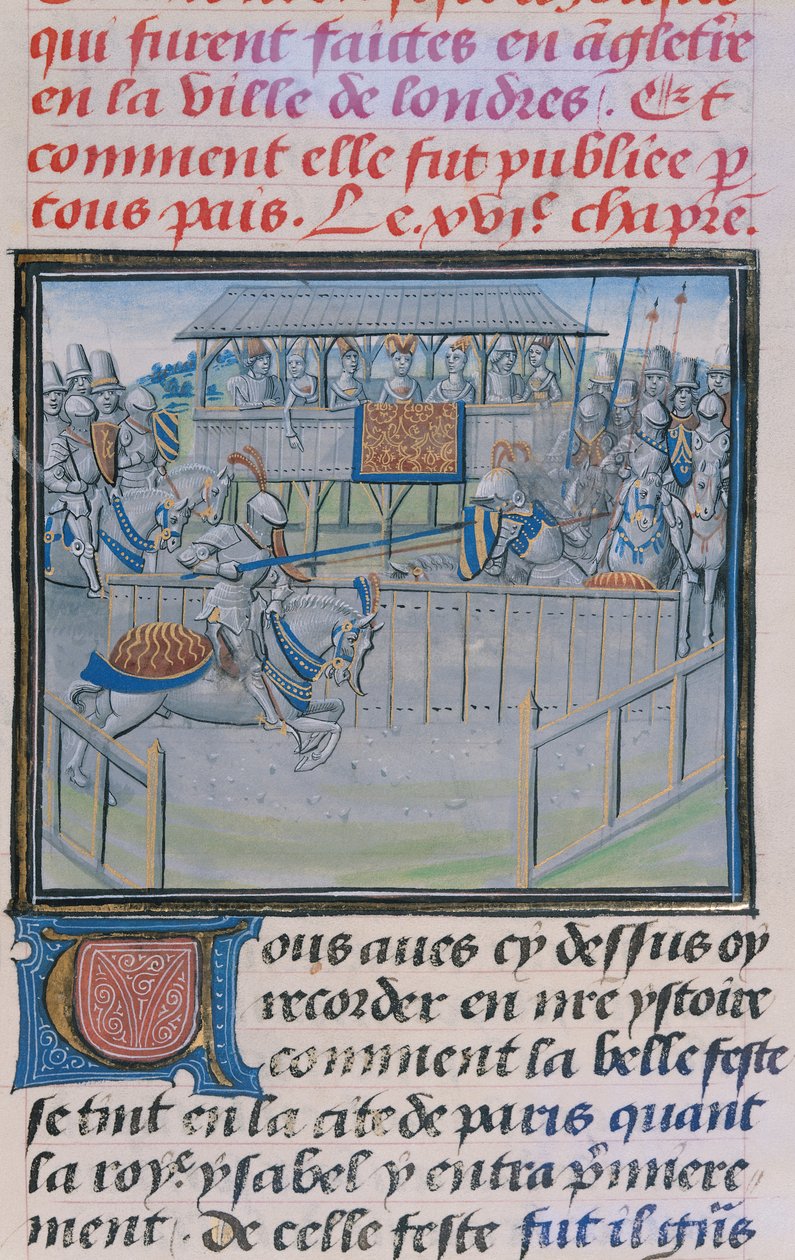 qui furent faictes en ãgletr̃e
en la ville de londres. Et
comment elle fut publiee p̱
tous pais. Le .xvi.ᵉ chapr̃e.
Vous aues cy dessus oy
recorder en nr̃e ystoire
comment la belle feste
se tint en la cite de paris quant
la royᵉ ysabel y entra p̃miere
ment. De celle feste fut il